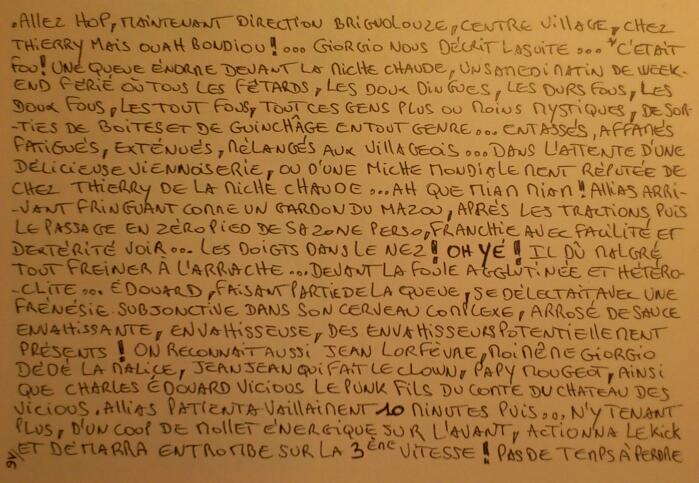 . ALLEZ HOP, MAINTENANT DIRECTION BRIGNOLOUZE, CENTRE VILLAGE, CHEZ
THIERRY MAIS OUAH BONDIOU !... GIORGIO NOUS DÉCRIT LA SUITE ... "C'ETAIT
FOU! UNE QUEUE ÉNORME DEVANT LA MICHE CHAUDE, UN SAMEDI MATIN DE WEEK-
END FÉRIÉ OÙ TOUS LES FÊTARDS, LES DOUX DINGUES, LES DURS FOUS, LES
DOUX FOUS, LES TOUT FOUS, TOUT CES GENS PLUS OU MOINS MYSTIQUES, DE SOR-
-TIES DE BOITES ET DE GUINCHÂGE EN TOUT GENRE ... ENTASSÉS, AFFAMÉS
FATIGUÉS, EXTÉNUÉS, MÉLANGÉS AUX VILLAGEOIS ... DANS L'ATTENTE D'UNE
DÉLICIEUSE VIENNOISERIE, OU D'UNE MICHE MONDIALEMENT RÉPUTÉE DE
CHEZ THIERRY DE LA MICHE CHAUDE ... AH QUE MIAM MIAM ! ALLIAS ARRI-
-VANT FRINGUANT COMME UN GARDON DU MAZOU, APRÈS LES TRACTIONS PUIS
LE PASSAGE EN ZÉRO PIED DE SA ZONE PERSO, FRANCHIE AVEC FACILITÉ ET
DEXTÉRITÉ VOIR ... LES DOIGTS DANS LE NEZ ! OH YÉ ! IL DÛ MALGRÉ
TOUT FREINER À L'ARRACHE ... DEVANT LA FOULE AGGLUTINÉE ET HÉTÉRO-
-CLITE ... ÉDOUARD, FAISANT PARTIE DE LA QUEUE, SE DÉLECTAIT AVEC UNE
FRÉNÉSIE SUBJONCTIVE DANS SON CERVEAU COMPLEXE, ARROSÉ DE SAUCE
ENVAHISSANTE, ENVAHISSEUSE, DES ENVAHISSEURS POTENTIELLEMENT
PRÉSENTS ! ON RECONNAIT AUSSI JEAN LORFÈVRE, MOI MÊME GIORGIO
DÉDÉ LA MALICE, JEAN JEAN QUI FAIT LE CLOWN, PAPY MOUGEOT, AINSI
QUE CHARLES ÉDOUARD VICIOUS LE PUNK FILS DU COMTE DU CHATEAU DES
VICIOUS. ALLIAS PATIENTA VAILLAMMENT 10 MINUTES PUIS ... N'Y TENANT
PLUS, D'UN COUP DE MOLLET ÉNERGIQUE SUR L'AVANT, ACTIONNA LE KICK
ET DÉMARRA EN TROMBE SUR LA 3ÈME VITESSE ! PAS DE TEMPS À PERDRE